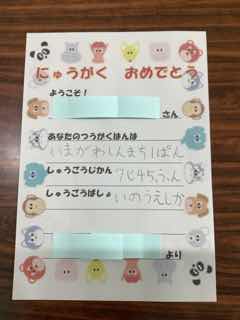 にゅうがく おめでとう
ようこそ!
さん
あなたのつうがくはんは
いまがわしんまち1ぱん
しゅうごうじかん 7じ45ふん
しゅうごうばしょ いのうえしか
より